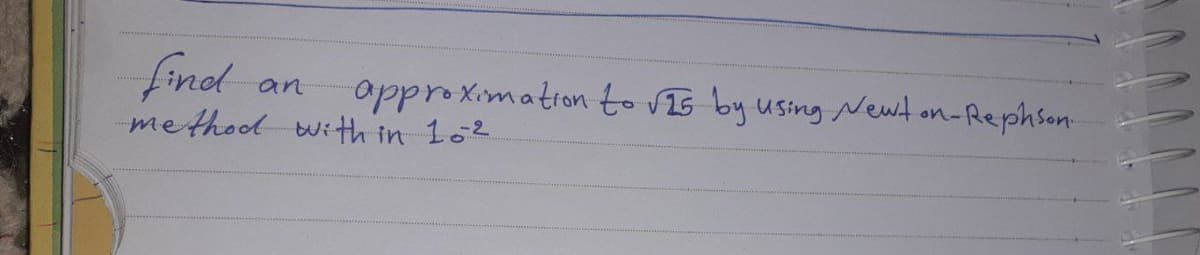 find an approximation to √15 by using Newton-Rephson
method with in 10^-2